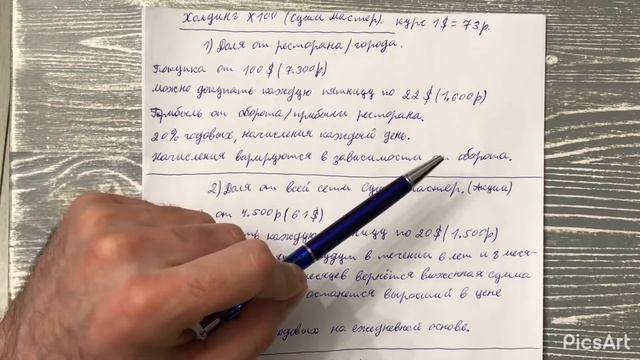 Холдинг X100 (Суши мастер). курс 1$ = 73р.
1) Доля от ресторана/города.
Покупка от 100$ (7.300р)
можно докупать каждую пятницу по 22$ (1.600р)
Прибыль от оборота/прибыли ресторана.
20% годовых, начисления каждый день.
начисления варируются в зависимости оборота.
2) Доля от всей сети мастер. (Акции)
от 4.500р (61$)
каждую по 20$ (1.500р)
будут в течении 6 лет и 8 меся-
месяцев вернётся вложенная сумма
останется выросший в цене
годовых на ежедневной основе.
PicsArt